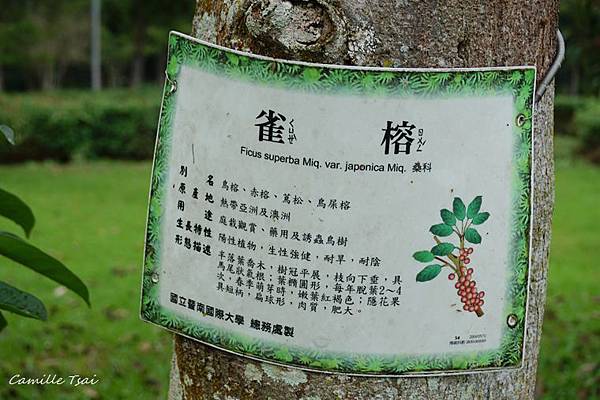 雀榕
ㄑㄩㄝˋ ㄖㄨㄥˊ
Ficus superba Miq. var. japonica Miq. 桑科
別名 鳥榕、赤榕、蔦松、鳥屎榕
原產地 熱帶亞洲及澳洲
用途 庭栽觀賞、藥用及誘蟲鳥樹
生長特性 陽性植物，生性強健，耐旱，耐陰
形態描述 半落葉喬木，樹冠平展，枝向下垂，具
馬尾狀氣根；葉橢圓形，每年脫葉2~4
次，春季萌芽時，嫩葉紅褐色；隱花果
具短柄，扁球形，肉質，肥大。
國立暨南國際大學 總務處製
54
Camille Tsai